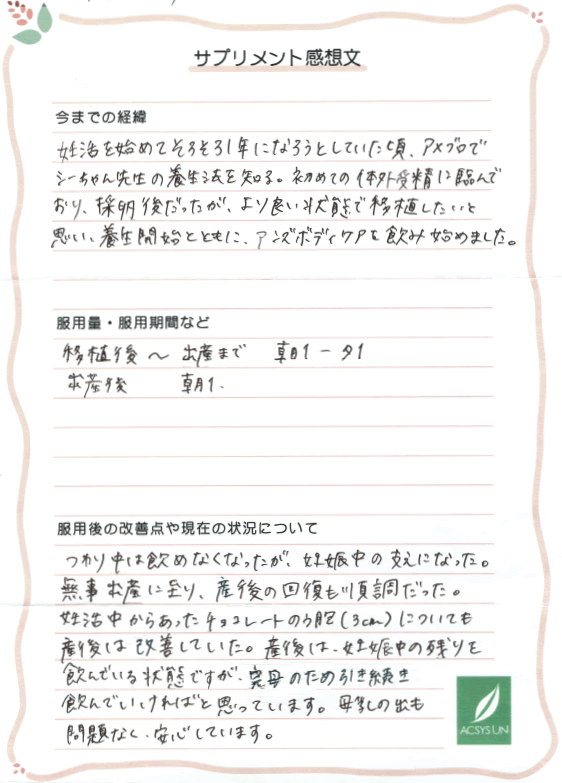 サプリメント感想文
今までの経緯
妊活を始めてそろそろ1年になろうとしていた頃、アメブロで
シーちゃん先生の養生法を知る。初めての体外受精に臨んで
おり、採卵後だったが、より良い状態で移植したいと
思い、養生開始とともに、アンズボディケアを飲み始めました。
服用量・服用期間など
移植後～出産まで 朝1-夕1
出産後 朝1.
服用後の改善点や現在の状況について
つわり中は飲めなくなったが、妊娠中の支えになった。
無事出産に至り、産後の回復も順調だった。
妊活中からあったチョコレートのう胞(3cm)についても
産後は改善していた。産後は、妊娠中の残りを
飲んでいる状態ですが、実母のため引き続き
飲んでいければと思っています。母乳の出も
問題なく、安心しています。
ACSYSUN